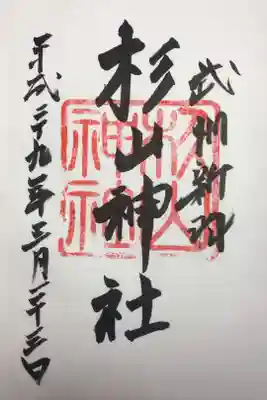 武州新羽
杉山神社
平成二十九年三月二十三日
杉山神社